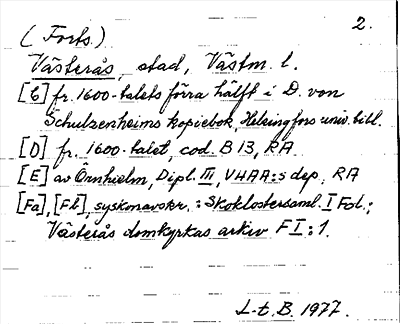 2.
(Forts.)
Västerås, stad, Västm. l.
[C] fr. 1600-talets förra hälft i D. von
Schulzenheims kopiebok, Helsingfors univ. bibl.
[D] fr. 1600-talet, cod. B 13, RA
[E] av Örnhielm, Dipl. III, VHAA:s dep. RA
[Fa], [Fb], syskonavskr. : Skoklostersaml. I Fol.;
Västerås domkyrkas arkiv F I : 1.
L-t. B. 1977.